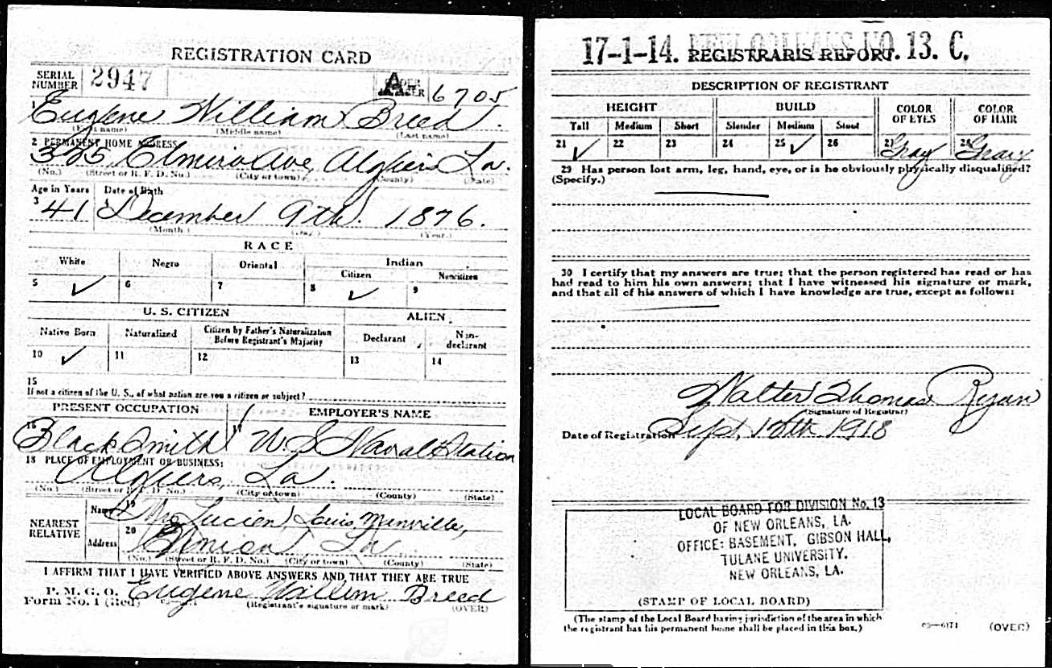 REGISTRATION CARD
SERIAL NUMBER 2947
ORDER NUMBER A 6705
1 Eugene William Breed
(First name) (Middle name) (Last name)
2 PERMANENT HOME ADDRESS:
325 Elmira Ave Algiers La.
(No.) (Street or R. F. D. No.) (City or town) (County) (State)
Age in Years Date of Birth
3 41 December 9th 1876.
(Month.) (Day.) (Year.)
RACE
White Negro Oriental Indian
Citizen Noncitizen
5 ✓ 6 7 8 ✓ 9
U. S. CITIZEN ALIEN
Native Born Naturalized Citizen by Father's Naturalization Before Registrant's Majority Declarant Non-declarant
10 ✓ 11 12 13 14
15
If not a citizen of the U. S., of what nation are you a citizen or subject?
PRESENT OCCUPATION EMPLOYER'S NAME
16 Black Smith 17 U S Naval Station
18 PLACE OF EMPLOYMENT OR BUSINESS:
Algiers, La.
(No.) (Street or R. F. D. No.) (City or town) (County) (State)
NEAREST RELATIVE
Name 19 Lucien Louis Minville,
Address 20 La
(No.) (Street or R. F. D. No.) (City or town) (County) (State)
I AFFIRM THAT I HAVE VERIFIED ABOVE ANSWERS AND THAT THEY ARE TRUE
P. M. G. O.
Form No. 1 (Red) Eugene William Breed
(Registrant's signature or mark) (OVER)
17-1-14. NEW ORLEANS NO. 13. C.
REGISTRAR'S REPORT
DESCRIPTION OF REGISTRANT
HEIGHT BUILD COLOR OF EYES COLOR OF HAIR
Tall Medium Short Slender Medium Stout
21 ✓ 22 23 24 25 ✓ 26 27 Gray 28 Gray
29 Has person lost arm, leg, hand, eye, or is he obviously physically disqualified?
(Specify.)
30 I certify that my answers are true; that the person registered has read or has
had read to him his own answers; that I have witnessed his signature or mark,
and that all of his answers of which I have knowledge are true, except as follows:
Walter Thomas Ryan
(Signature of Registrar)
Date of Registration Sept. 12th 1918
LOCAL BOARD FOR DIVISION No. 13
OF NEW ORLEANS, LA.
OFFICE: BASEMENT, GIBSON HALL,
TULANE UNIVERSITY.
NEW ORLEANS, LA.
(STAMP OF LOCAL BOARD)
(The stamp of the Local Board having jurisdiction of the area in which
the registrant has his permanent home shall be placed in this box.)
03—6171 (OVER)